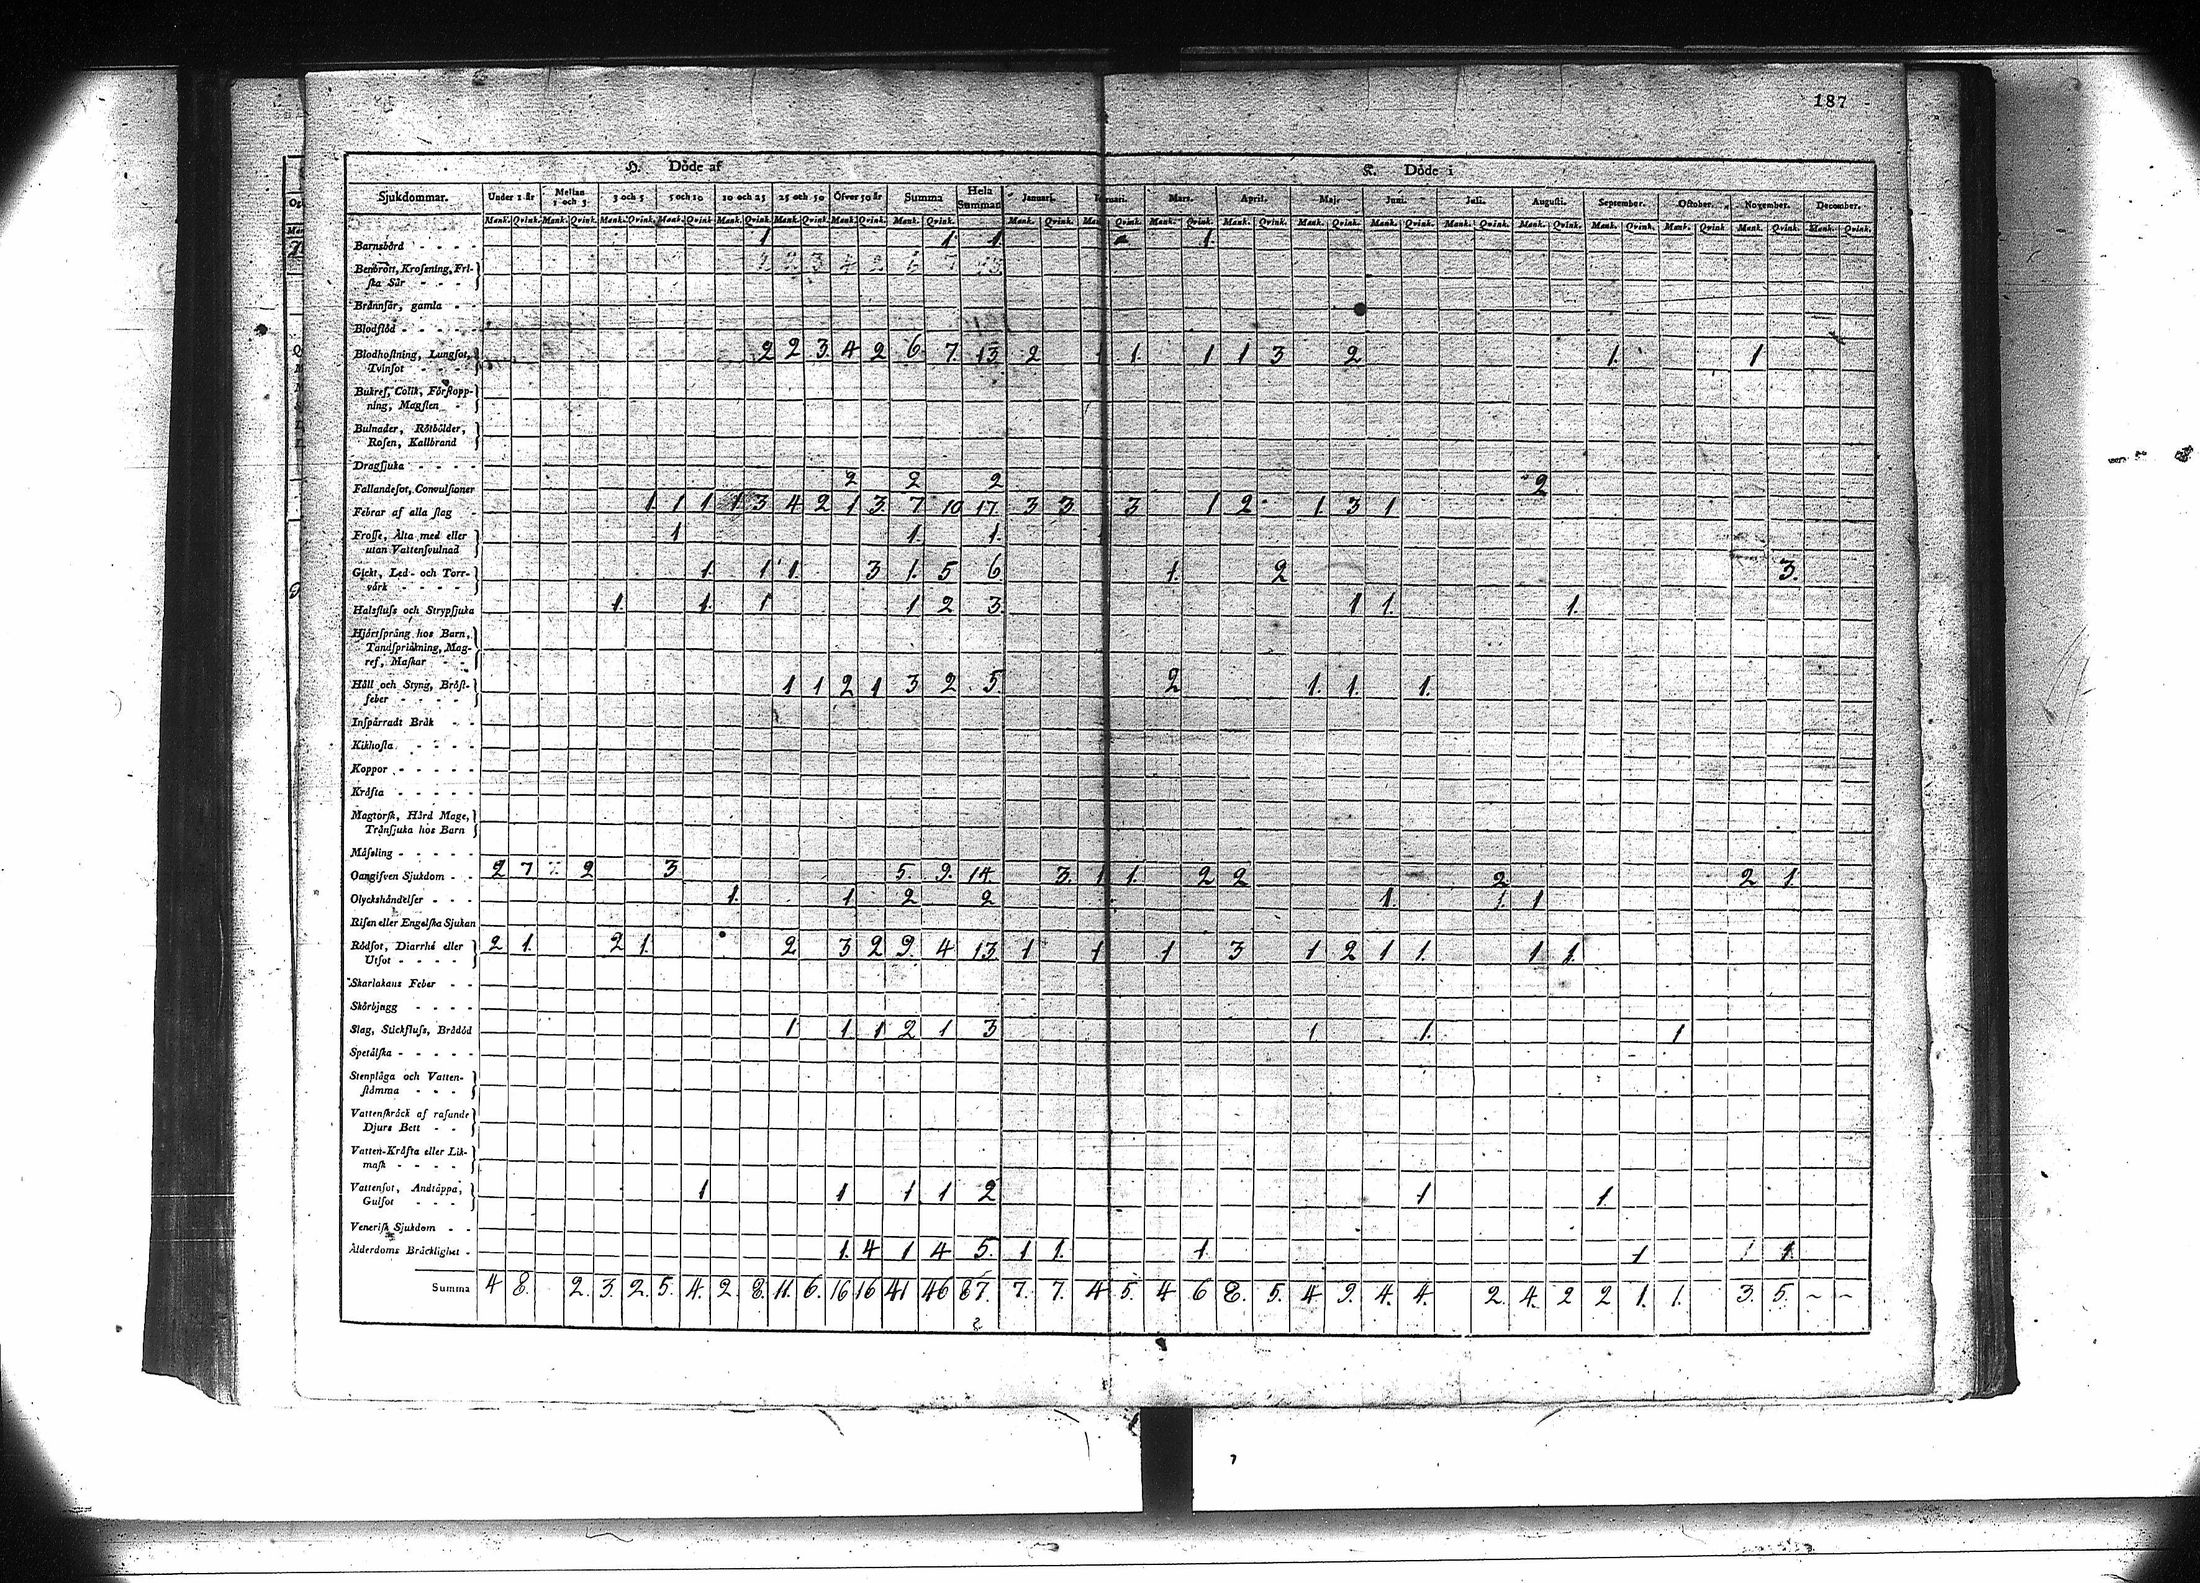 187
H. Döde af K. Döde i
Sjukdommar. Under 1 år Mellan 1 och 3 3 och 5 5 och 10 10 och 25 25 och 50 Öfver 50 år Summa Hela Summan Januari. Mars. April. Maji Juni. Juli. Augusti. September. October. November. December.
Mank. Qvink. Mank. Qvink. Mank. Qvink. Mank. Qvink. Mank. Qvink. Mank. Qvink. Mank. Qvink. Mank. Qvink. Mank. Qvink. Qvink. Mank. Qvink. Mank. Qvink. Mank. Qvink. Mank. Qvink. Mank. Qvink. Mank. Qvink. Mank. Qvink. Mank. Qvink. Mank. Qvink. Mank. Qvink.
Barnsbörd - - - - 1 1 1 1
Benbrott, Krosning, Fri-
ska Sår - - - -
Brännsår, gamla - -
Blodflöd - - - - -
Blodhostning, Lungsot, 2 2 3 4 2 6 7 13 2 1 1 1 3 2 1 1
Tvinsot - - - -
Bukref, Colik, Förstopp-
ning, Magsten -
Bulnader, Rötbölder,
Rosen, Kallbrand
Dragsjuka - - - -
Fallandesot, Convulsioner 2 2 2 2
Febrar af alla slag - 1 1 1 1 3 4 2 1 3 7 10 17 3 3 3 1 2 1 3 1
Frossa, Älta med eller 1 1 1
utan Vattensvulnad
Gickt, Led- och Torr- 1 1 1 3 1 5 6 1 2 3
värk - - - -
Halsfluss och Strypsjuka 1 1 1 1 2 3 1 1 1
Hjertsprång hos Barn,
Tandsprickning, Mag-
ref, Maskar - -
Håll och Styng, Bröst- 1 1 2 1 3 2 5 2 1 1 1
feber - - - -
Inspärradt Bråk - -
Kikhosta - - - -
Koppor - - - - -
Kräfta - - - - -
Magtorsk, Hård Mage,
Trånsjuka hos Barn
Måsling - - - - -
Oangifven Sjukdom - - 2 7 2 3 5 9 14 3 1 1 2 2 2 2 1
Olyckshändelser - - - 1 1 2 2 1 1 1
Risen eller Engelska Sjukan
Rödsot, Diarrhé eller 2 1 2 1 2 3 2 9 4 13 1 1 1 3 1 2 1 1 1 1
Utsot - - - -
Skarlakans Feber - -
Skörbjugg - - - -
Slag, Stickfluss, Brådöd 1 1 1 2 1 3 1 1 1
Spetälska - - - - -
Stenplåga och Vatten-
stämma - - -
Vattenskräck af rasande
Djurs Bett - -
Vatten-Kräfta eller Lik-
mask - - - -
Vattensot, Andtäppa, 1 1 1 1 2 1 1
Gulsot - - -
Venerisk Sjukdom - -
Ålderdoms Bräcklighet - 1 4 1 4 5 1 1 1 1 1 1
Summa 4 8. 2. 3. 2. 5. 4. 2. 8. 11. 6. 16 16 41 46 87. 7. 7. 4 5. 4 6 8. 5. 4 9. 4. 4. 2. 4. 2 2 1. 1. 3. 5. ~ ~